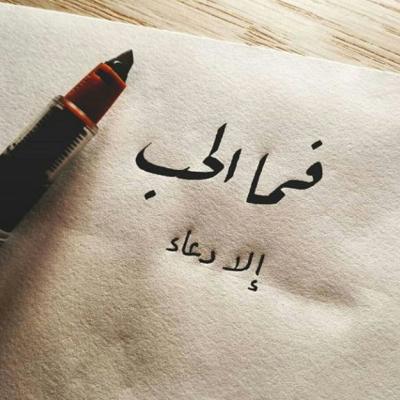 فما الحب
إلا دعاء